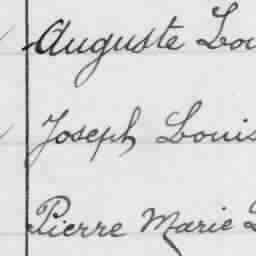 Auguste Lou
Joseph Louis
Pierre Marie L